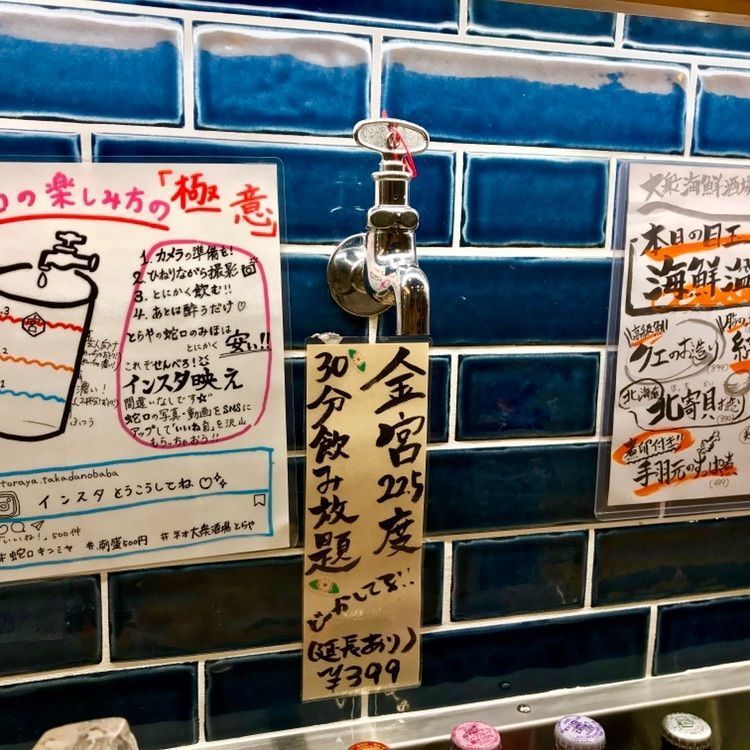 の楽しみ方の「極意」
1. カメラの準備を!
2. ひねりながら撮影
3. とにかく飲む!!
4. あとは酔うだけ♡
とらやの蛇口のみほは
とにかく安い!!
これぞせんべろ!
インスタ映え
間違いなしです☆
蛇口の写真・動画をSNSに
アップして「いいね」を沢山
もらっちゃおう!!
3
2
濃い!
ふつう
toraya.takadanobaba
インスタとうこうしてね♡☆
「いいね!」500件
#蛇口キンミヤ #刺盛500円 #ネオ大衆酒場とらや
金宮22.5度
30分飲み放題
(延長あり)
¥399
大衆海鮮酒場
本日の目玉
海鮮
高級魚!
クエのお造り
(899)
北海道
北寄貝お造り
煮卵付き!
手羽元のすっぱ煮
(499)